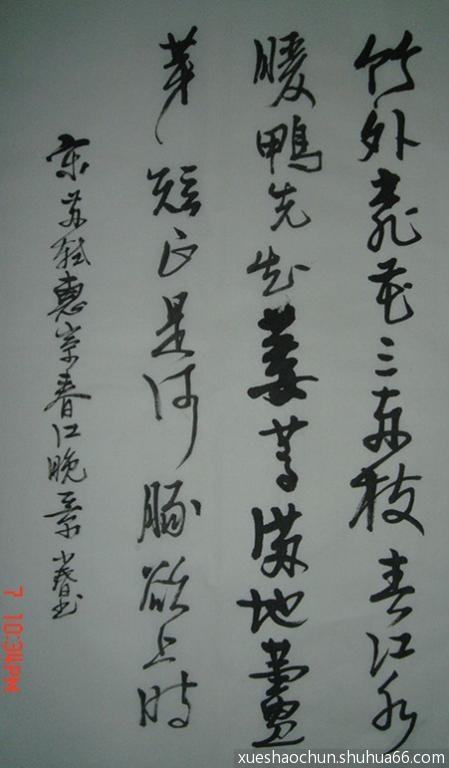 竹外桃花三两枝春江水
暖鴨先知蔞蒿满地蘆
芽短正是河豚欲上時
宋苏轼惠崇春江晚景
7 10:34PM
xueshaochun.shuhua66.com